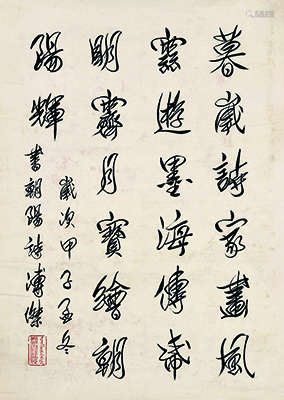 暮歲詩家畫風
遊墨海傳
明霽月寶繪朝
陽輝
歲次甲子孟冬
書朝陽詩溥傑